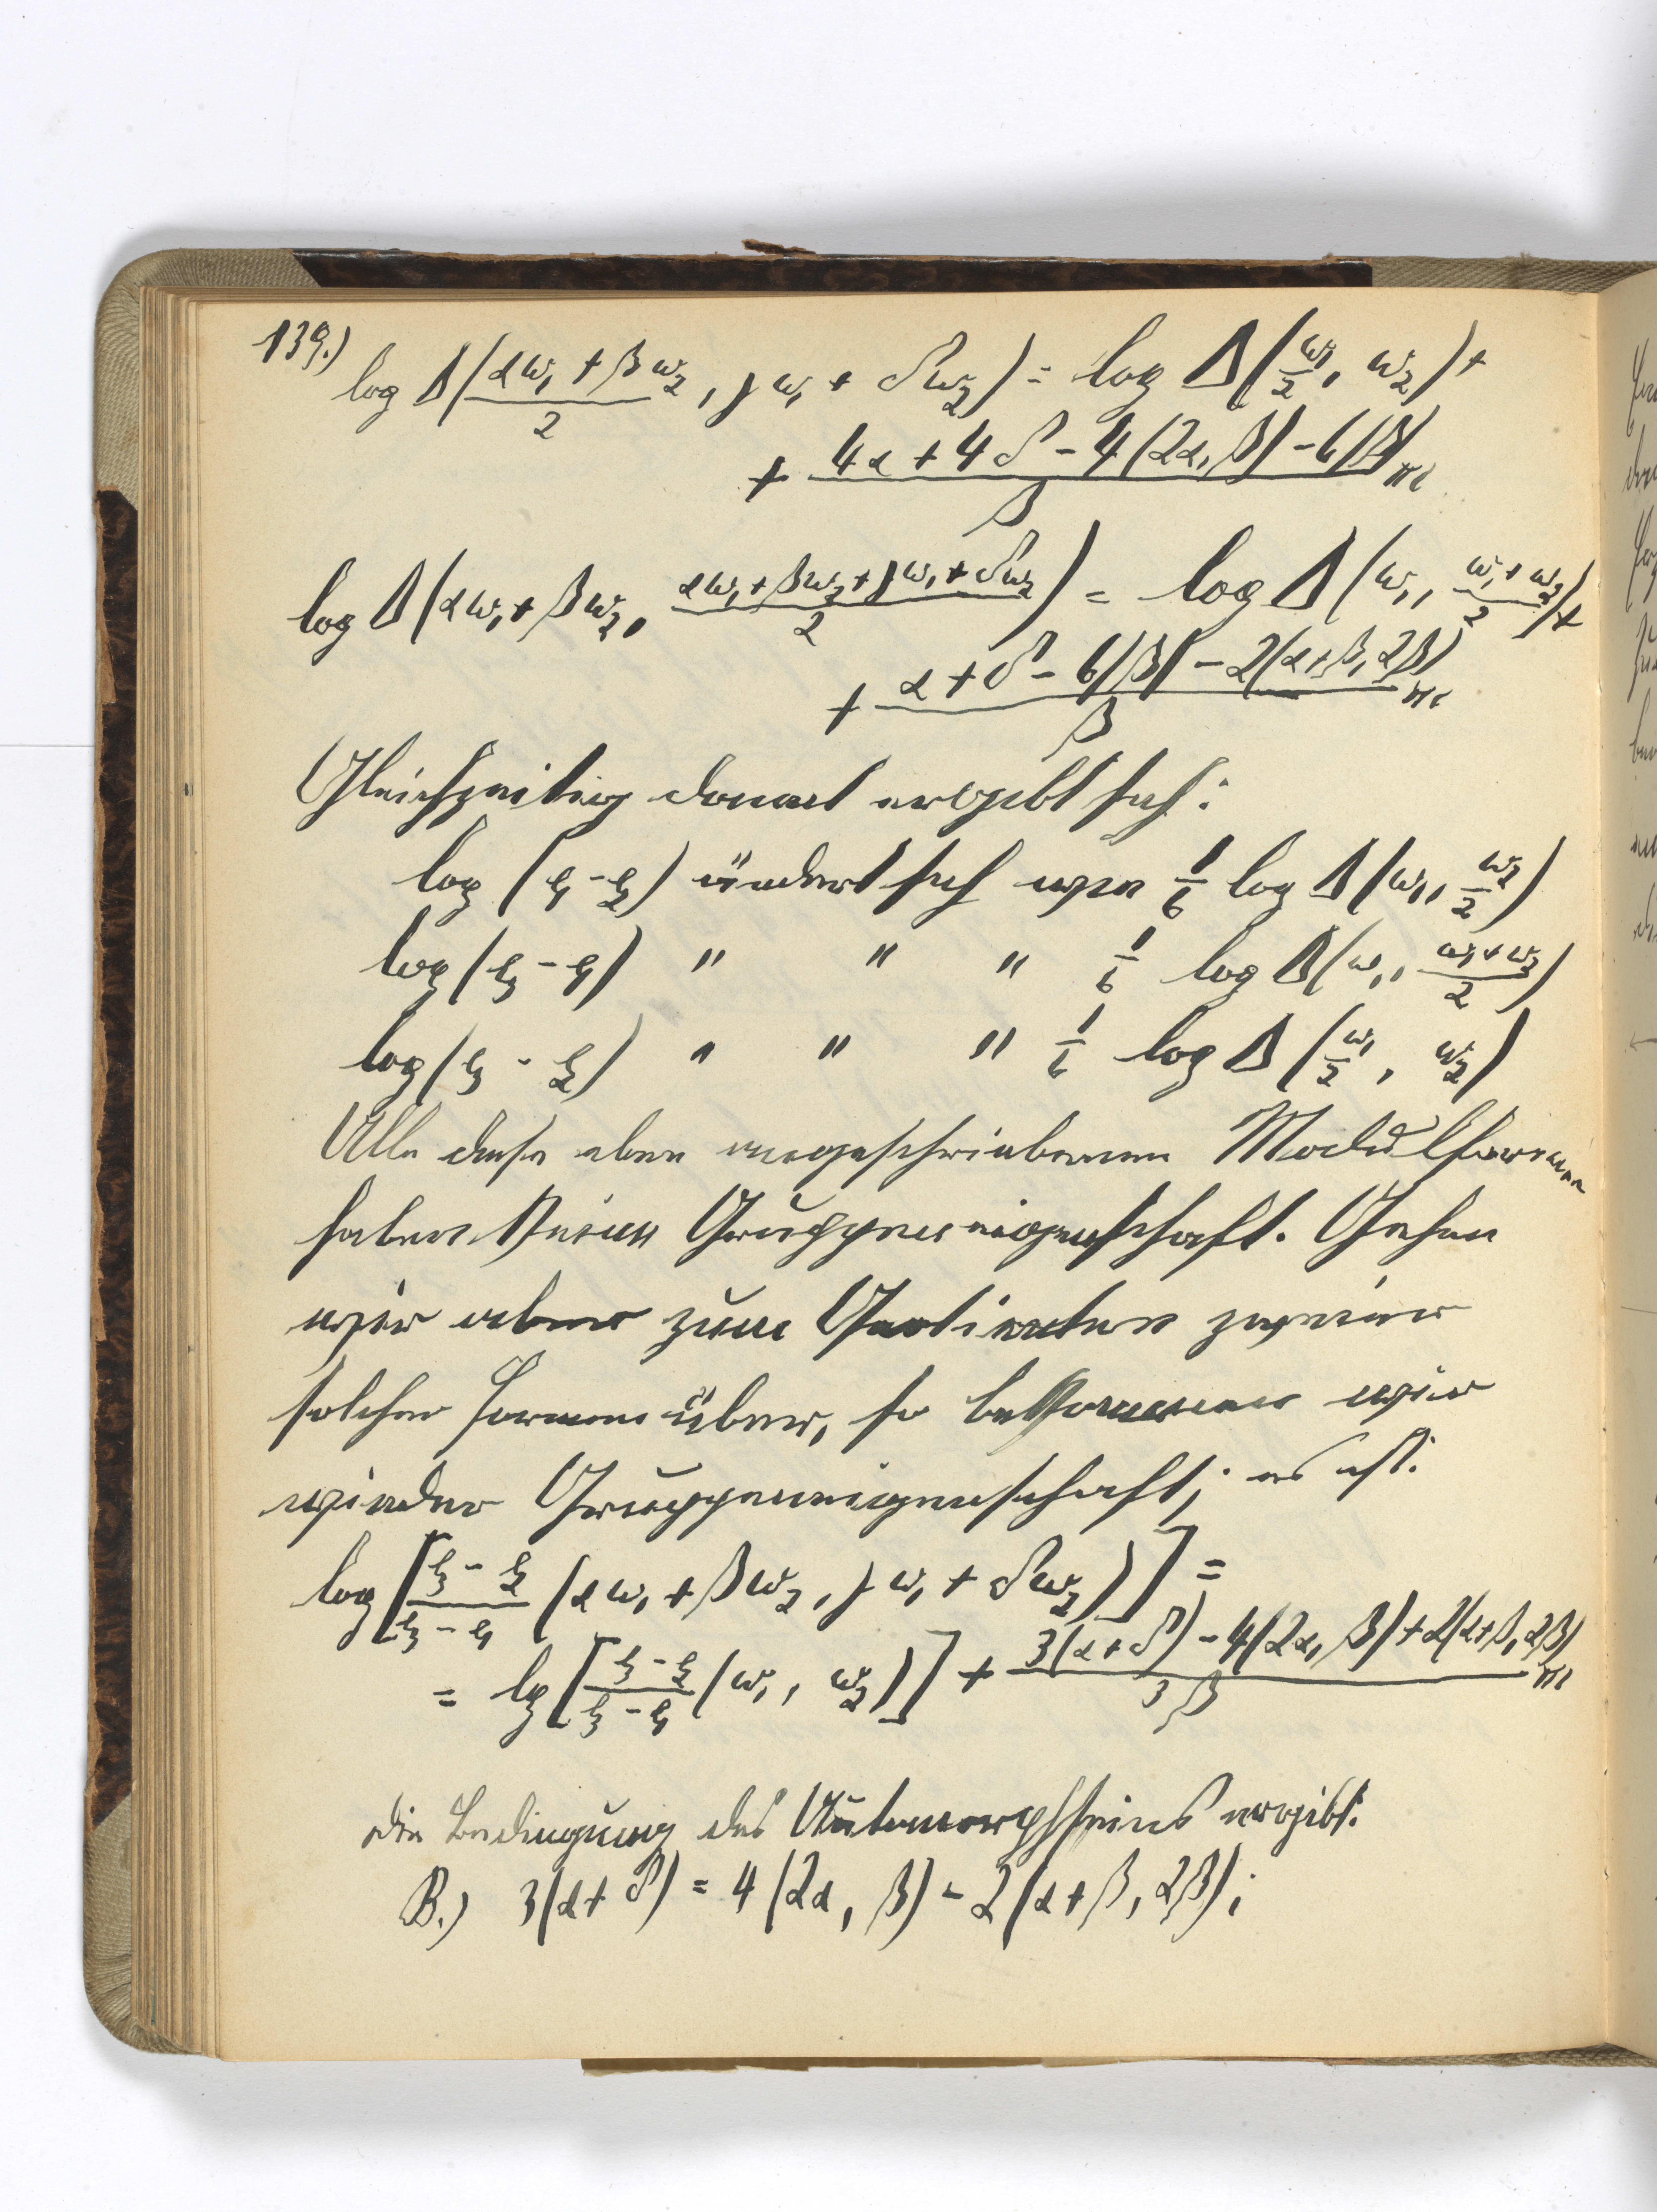 139.)
log Δ((αω₁ + βω₂)/2, γω₁ + δω₂) = log Δ(ω₁/2, ω₂) +
+ (4α + 4δ - 4(2α, β) - 6|β|)/β πi
log Δ(αω₁ + βω₂, (αω₁ + βω₂ + γω₁ + δω₂)/2) = log Δ(ω₁, (ω₁ + ω₂)/2) +
+ (α + δ - 6|β| - 2(α+β, 2β))/β πi
Gleichzeitig damit ergibt sich:
log (e₁ - e₂) ändert sich wie 1/6 log Δ(ω₁, ω₂/2)
log (e₃ - e₁) " " " 1/6 log Δ(ω₁, (ω₁ + ω₂)/2)
log (e₃ - e₂) " " " 1/6 log Δ(ω₁/2, ω₂)
Alle diese oben angeschriebenen Modulformen
haben keine Gruppeneigenschaft. Gehen
wir aber zum Quotienten zweier
solcher Formen über, so bekommen wir
wieder Gruppeneigenschaft; es ist:
log [(e₃ - e₂)/(e₃ - e₁) (αω₁ + βω₂, γω₁ + δω₂)] =
= lg [(e₃ - e₂)/(e₃ - e₁) (ω₁, ω₂)] + (3(α+δ) - 4(2α, β) + 2(α+β, 2β))/3β πi
Die Bedingung des Automorphseins ergibt:
B.) 3(α + δ) = 4(2α, β) - 2(α + β, 2β);